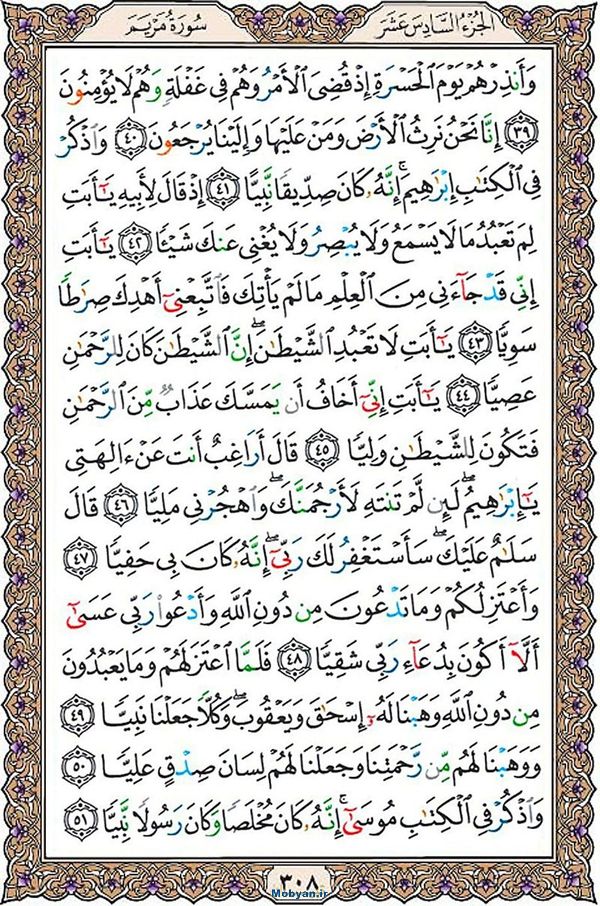 الجزء السادس عشر
سورة مريم
وَأَنذِرْهُمْ يَوْمَ الْحَسْرَةِ إِذْ قُضِيَ الْأَمْرُ وَهُمْ فِي غَفْلَةٍ وَهُمْ لَا يُؤْمِنُونَ
﴿٣٩﴾ إِنَّا نَحْنُ نَرِثُ الْأَرْضَ وَمَنْ عَلَيْهَا وَإِلَيْنَا يُرْجَعُونَ ﴿٤٠﴾ وَاذْكُرْ
فِي الْكِتَٰبِ إِبْرَٰهِيمَ ۚ إِنَّهُۥ كَانَ صِدِّيقًا نَّبِيًّا ﴿٤١﴾ إِذْ قَالَ لِأَبِيهِ يَٰٓأَبَتِ
لِمَ تَعْبُدُ مَا لَا يَسْمَعُ وَلَا يُبْصِرُ وَلَا يُغْنِي عَنكَ شَيْـًٔا ﴿٤٢﴾ يَٰٓأَبَتِ
إِنِّي قَدْ جَآءَنِي مِنَ الْعِلْمِ مَا لَمْ يَأْتِكَ فَاتَّبِعْنِيٓ أَهْدِكَ صِرَٰطًا
سَوِيًّا ﴿٤٣﴾ يَٰٓأَبَتِ لَا تَعْبُدِ الشَّيْطَٰنَ ۖ إِنَّ الشَّيْطَٰنَ كَانَ لِلرَّحْمَٰنِ
عَصِيًّا ﴿٤٤﴾ يَٰٓأَبَتِ إِنِّيٓ أَخَافُ أَن يَمَسَّكَ عَذَابٌ مِّنَ الرَّحْمَٰنِ
فَتَكُونَ لِلشَّيْطَٰنِ وَلِيًّا ﴿٤٥﴾ قَالَ أَرَاغِبٌ أَنتَ عَنْ ءَالِهَتِي
يَٰٓإِبْرَٰهِيمُ ۖ لَئِن لَّمْ تَنتَهِ لَأَرْجُمَنَّكَ ۖ وَاهْجُرْنِي مَلِيًّا ﴿٤٦﴾ قَالَ
سَلَٰمٌ عَلَيْكَ ۖ سَأَسْتَغْفِرُ لَكَ رَبِّيٓ ۖ إِنَّهُۥ كَانَ بِي حَفِيًّا ﴿٤٧﴾
وَأَعْتَزِلُكُمْ وَمَا تَدْعُونَ مِن دُونِ اللَّهِ وَأَدْعُوا رَبِّي عَسَىٰٓ
أَلَّآ أَكُونَ بِدُعَآءِ رَبِّي شَقِيًّا ﴿٤٨﴾ فَلَمَّا اعْتَزَلَهُمْ وَمَا يَعْبُدُونَ
مِن دُونِ اللَّهِ وَهَبْنَا لَهُۥٓ إِسْحَٰقَ وَيَعْقُوبَ ۖ وَكُلًّا جَعَلْنَا نَبِيًّا ﴿٤٩﴾
وَوَهَبْنَا لَهُم مِّن رَّحْمَتِنَا وَجَعَلْنَا لَهُمْ لِسَانَ صِدْقٍ عَلِيًّا ﴿٥٠﴾
وَاذْكُرْ فِي الْكِتَٰبِ مُوسَىٰٓ ۚ إِنَّهُۥ كَانَ مُخْلَصًا وَكَانَ رَسُولًا نَّبِيًّا ﴿٥١﴾
٣٠٨
Mobyan.ir